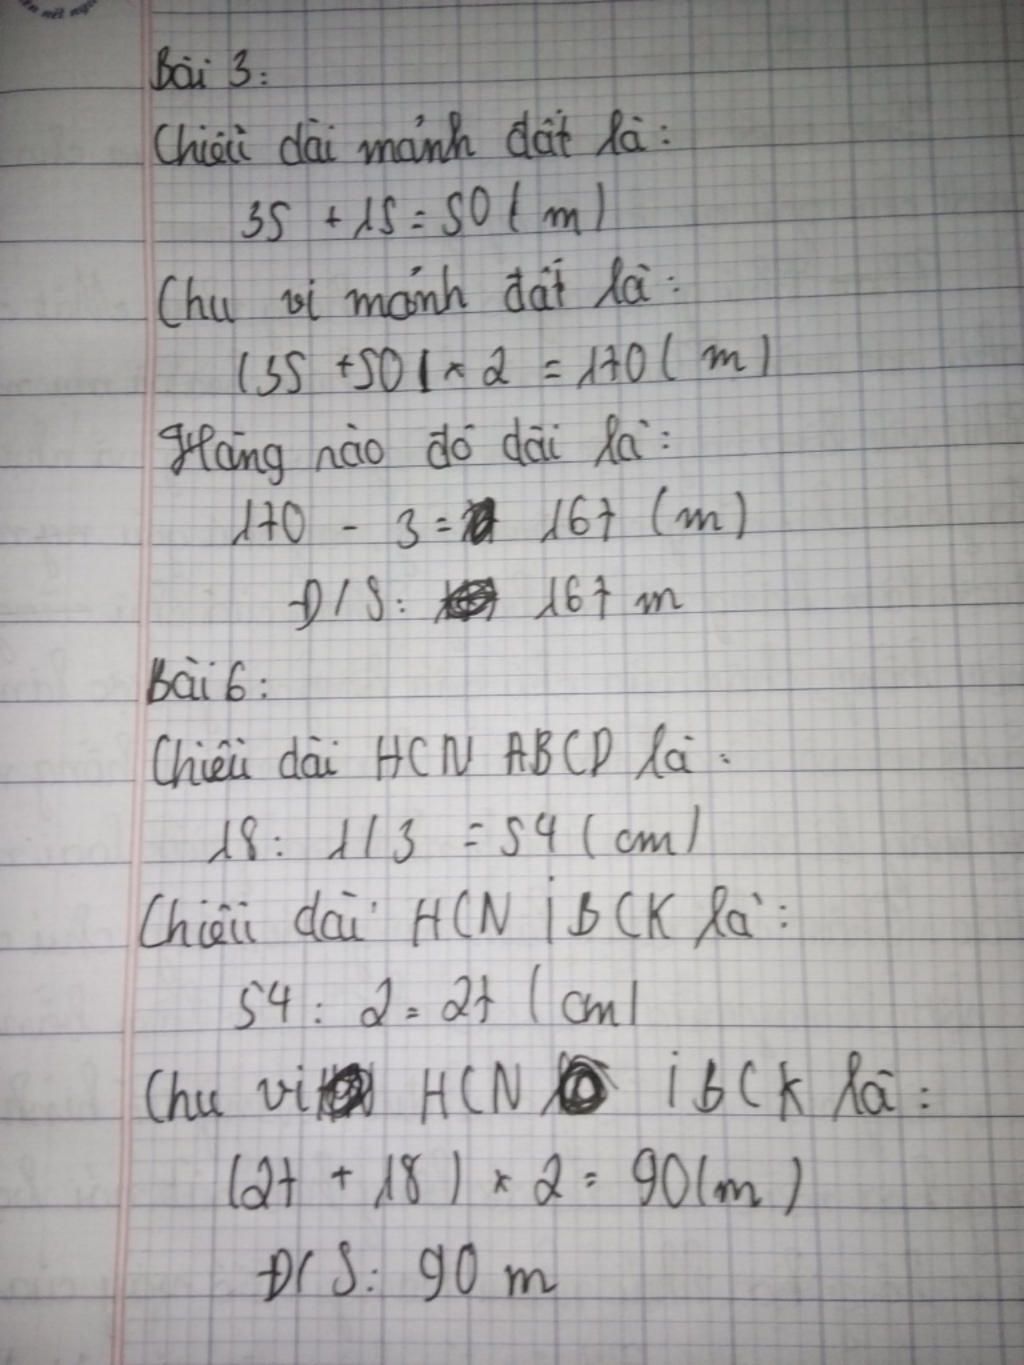 Bài 3:
Chiều dài mảnh đất là:
35 + 15 = 50 (m)
Chu vi mảnh đất là:
(35 + 50) × 2 = 170 (m)
Hàng nào đó dài là:
170 - 3 = 167 (m)
Đ/S: 167 m
Bài 6:
Chiều dài HCN ABCD là:
18 : 1/3 = 54 (cm)
Chiều dài HCN iBCK là:
54 : 2 = 27 (cm)
Chu vi HCN iBCK là:
(27 + 18) × 2 = 90 (m)
Đ/S: 90 m